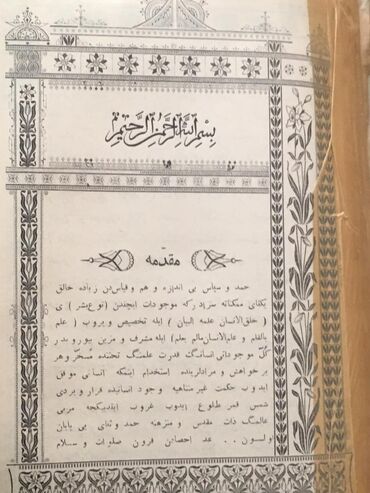 بسم الله الرحمن الرحيم
مقدمه
حمد و سپاس بی اندازه و هم و قیاس‌دن زیاده خالق
یکتای سزادر که موجودات ایچندن (نوع بشر) ی
(خلق الانسان علمه البیان) ایله تخصیص و یروب (علم
بالقلم و علم الانسان مالم یعلم) ایله مشرف و مزین بیورو بدر
کل موجوداتی انسانک قدرت علمنک تحتنده مسخر و هر
بر خواهش و مرادلرینده استخدام ایتمکه انسانی موفق
ایدوب حکمت غیر متناهیه وجود انسانیده قرار ویردی
شمس قمر طلوع ایدوب غروب ایتدیکجه مربی
عالمنک ذات مقدس و منزهنه حمد و ثنای بی پایان
اولسون . . عد احصادن فزون صلوات و سلام